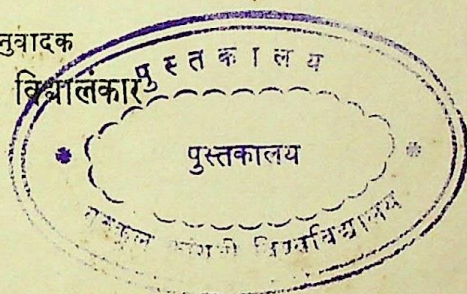 नुवादक
विद्यालंकार
पुस्तकालय
पुस्तकालय
विश्वविद्यालय